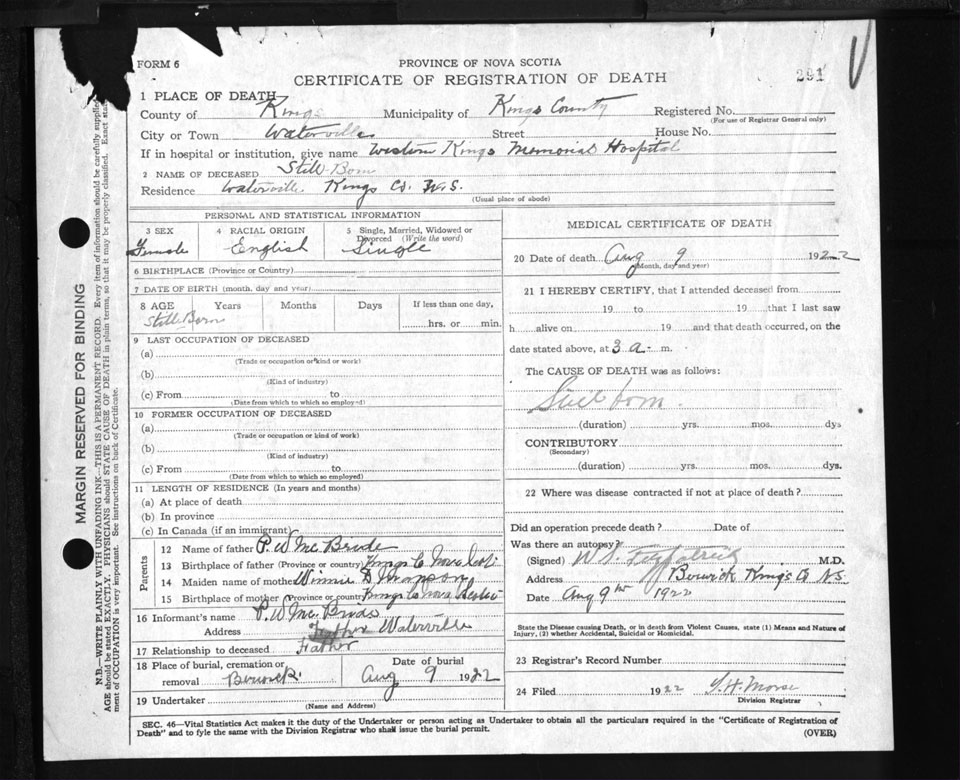 FORM 6
PROVINCE OF NOVA SCOTIA
CERTIFICATE OF REGISTRATION OF DEATH
291
1 PLACE OF DEATH
County of Kings Municipality of Kings County Registered No.
(For use of Registrar General only)
City or Town Waterville Street House No.
If in hospital or institution, give name Western Kings Memorial Hospital
2 NAME OF DECEASED Still Born
Residence Waterville Kings Co. N.S.
(Usual place of abode)
PERSONAL AND STATISTICAL INFORMATION
3 SEX 4 RACIAL ORIGIN 5 Single, Married, Widowed or Divorced (Write the word)
Female English Single
6 BIRTHPLACE (Province or Country)
7 DATE OF BIRTH (month, day and year)
8 AGE Years Months Days If less than one day,
Still Born hrs. or min.
9 LAST OCCUPATION OF DECEASED
(a)
(Trade or occupation or kind or work)
(b)
(Kind of industry)
(c) From to
(Date from which to which so employed)
10 FORMER OCCUPATION OF DECEASED
(a)
(Trade or occupation or kind of work)
(b)
(Kind of industry)
(c) From to
(Date from which to which so employed)
11 LENGTH OF RESIDENCE (In years and months)
(a) At place of death
(b) In province
(c) In Canada (if an immigrant)
Parents
12 Name of father P. W McBride
13 Birthplace of father (Province or country) Kings Co Nova Scoti
14 Maiden name of mother Winnie D
15 Birthplace of mother (Province or country) Kings Co Nova Scotia
16 Informant's name P. W McBride
Address Father Waterville
17 Relationship to deceased Father
18 Place of burial, cremation or removal Berwick Date of burial Aug 9 1922
19 Undertaker
(Name and Address)
MEDICAL CERTIFICATE OF DEATH
20 Date of death Aug 9 1922
(Month, day and year)
21 I HEREBY CERTIFY, that I attended deceased from
19 to 19 that I last saw
h alive on 19 and that death occurred, on the
date stated above, at 3 a- m.
The CAUSE OF DEATH was as follows:
Still born.
(duration) yrs. mos. dys
CONTRIBUTORY
(Secondary)
(duration) yrs. mos. dys.
22 Where was disease contracted if not at place of death?
Did an operation precede death? Date of
Was there an autopsy?
(Signed) W S. Fitzpatrick M.D.
Address Berwick Kings Co N.S.
Date Aug 9th 1922
State the Disease causing Death, or in death from Violent Causes, state (1) Means and Nature of
Injury, (2) whether Accidental, Suicidal or Homicidal.
23 Registrar's Record Number
24 Filed 1922 Morse
Division Registrar
SEC. 46—Vital Statistics Act makes it the duty of the Undertaker or person acting as Undertaker to obtain all the particulars required in the "Certificate of Registration of
Death" and to fyle the same with the Division Registrar who shall issue the burial permit.
(OVER)
MARGIN RESERVED FOR BINDING
N.B.—WRITE PLAINLY WITH UNFADING INK—THIS IS A PERMANENT RECORD. Every item of information should be carefully supplied.
AGE should be stated EXACTLY. PHYSICIANS should STATE CAUSE OF DEATH in plain terms, so that it may be properly classified. Exact
ment of OCCUPATION is very important. See instructions on back of Certificate.